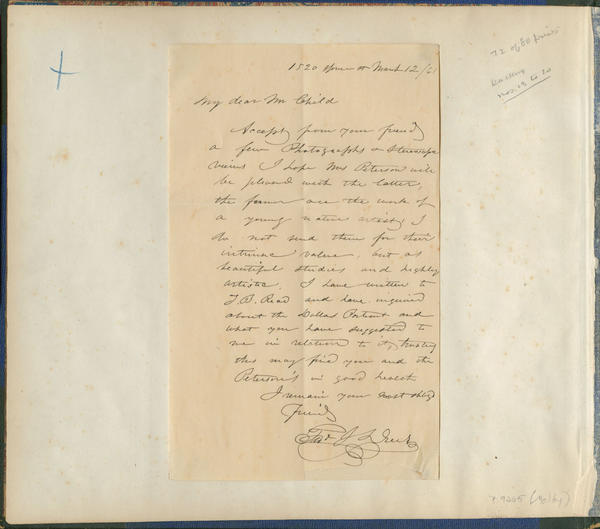 1520 Spruce St March 12/61
My dear Mr Child
Accept from your friend
a few Photographs & Stereoscope
views I hope Mrs Peterson will
be pleased with the latter,
the former are the work of
a young native artist, I
do not send them for their
intrinsic value, but as
beautiful studies and highly
artistic. I have written to
T. B. Read and have inquired
about the Dallas Portrait and
what you have suggested to
me in relation to it, trusting
this may find you and the
Peterson's in good health
I remain your most oblgd
Friend
72 of 80 prints
nos. 19 to 20